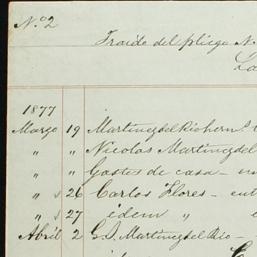 N.º 2
Traido del pliego N.
La
1877
Marzo 19 Martinez del Rio herm.s
" " Nicolas Martinez del
" " Gastos de casa -
" " 26 Carlos Flores - ent
" " 27 idem "
Abril 2 G. I. Martinez del Rio -